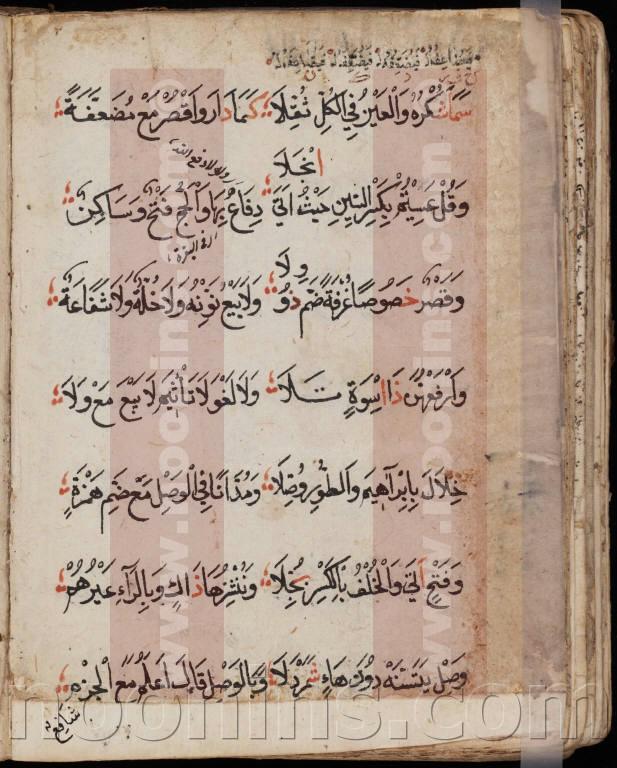 فيضاعفه فيضعفه فيضعفه فيضاعفه
سما شكره والعين في الكل ثقلا كما دار واقصر مع مضعفة
انجلا
وقل عسيتم بكسر السين حيث اتى دفاع بها والحج فتح وساكن
ولا
وقصر خصوصا غرفة ضم ذو ولا بيع نونه ولا خلة ولا شفاعة
وارفعهن ذا اسوة تلا ولا لغو لا تأثيم لا بيع مع ولا
خلال بابراهيم والطور وصلا ومد انا في الوصل مع ضم همزة
وفتح اتى والخلف بالكسر بجلا وننشزها ذاك وبالراء غيرهم
وصل يتسنه دون هاء شمردلا وبالوصل قال اعلم مع الجزم
شافع